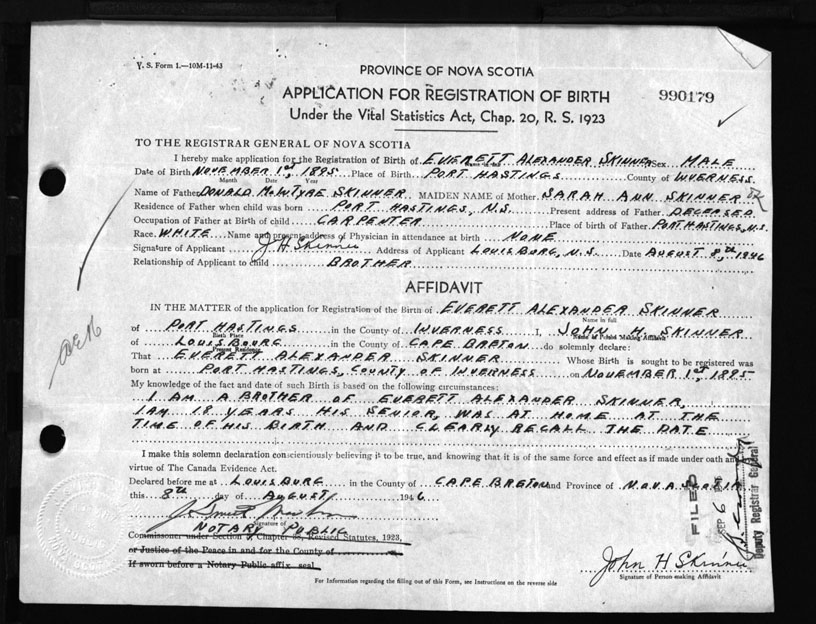 V. S. Form 1.—10M-11-43
PROVINCE OF NOVA SCOTIA
APPLICATION FOR REGISTRATION OF BIRTH
990179
Under the Vital Statistics Act, Chap. 20, R. S. 1923
TO THE REGISTRAR GENERAL OF NOVA SCOTIA
I hereby make application for the Registration of Birth of EVERETT ALEXANDER SKINNER Sex MALE
Date of Birth NOVEMBER 1st, 1895 Place of Birth PORT HASTINGS County of INVERNESS
Month Date Year
Name of Father DONALD McINTYRE SKINNER MAIDEN NAME of Mother SARAH ANN SKINNER
Residence of Father when child was born PORT HASTINGS, N.S. Present address of Father DECEASED
Occupation of Father at Birth of child CARPENTER Place of birth of Father PORT HASTINGS, N.S.
Race WHITE Name and present address of Physician in attendance at birth NONE
Signature of Applicant J H Skinner Address of Applicant LOUISBURG, N.S. Date AUGUST 8th 1946
Relationship of Applicant to child BROTHER
AFFIDAVIT
IN THE MATTER of the application for Registration of the Birth of EVERETT ALEXANDER SKINNER
Name in full
of PORT HASTINGS in the County of INVERNESS I, JOHN H. SKINNER
Birth Place Name of Person Making Affidavit
of LOUISBOURG in the County of CAPE BRETON do solemnly declare:
Present Residence
That EVERETT ALEXANDER SKINNER Whose Birth is sought to be registered was
born at PORT HASTINGS, COUNTY OF INVERNESS on NOVEMBER 1st, 1895
My knowledge of the fact and date of such Birth is based on the following circumstances:
I AM A BROTHER OF EVERETT ALEXANDER SKINNER,
I AM 18 YEARS HIS SENIOR, WAS AT HOME AT THE
TIME OF HIS BIRTH AND CLEARLY RECALL THE DATE
I make this solemn declaration conscientiously believing it to be true, and knowing that it is of the same force and effect as if made under oath and by
virtue of The Canada Evidence Act.
Declared before me at LOUISBURG in the County of CAPE BRETON and Province of NOVA SCOTIA
this 8th day of AUGUST 1946
Signature of
NOTARY PUBLIC
Commissioner under Section Chapter Revised Statutes, 1923,
or Justice of the Peace in and for the County of
If sworn before a Notary Public affix seal
John H Skinner
Signature of Person making Affidavit
For Information regarding the filling out of this Form, see Instructions on the reverse side
FILED
SEP 6
Deputy Registrar General